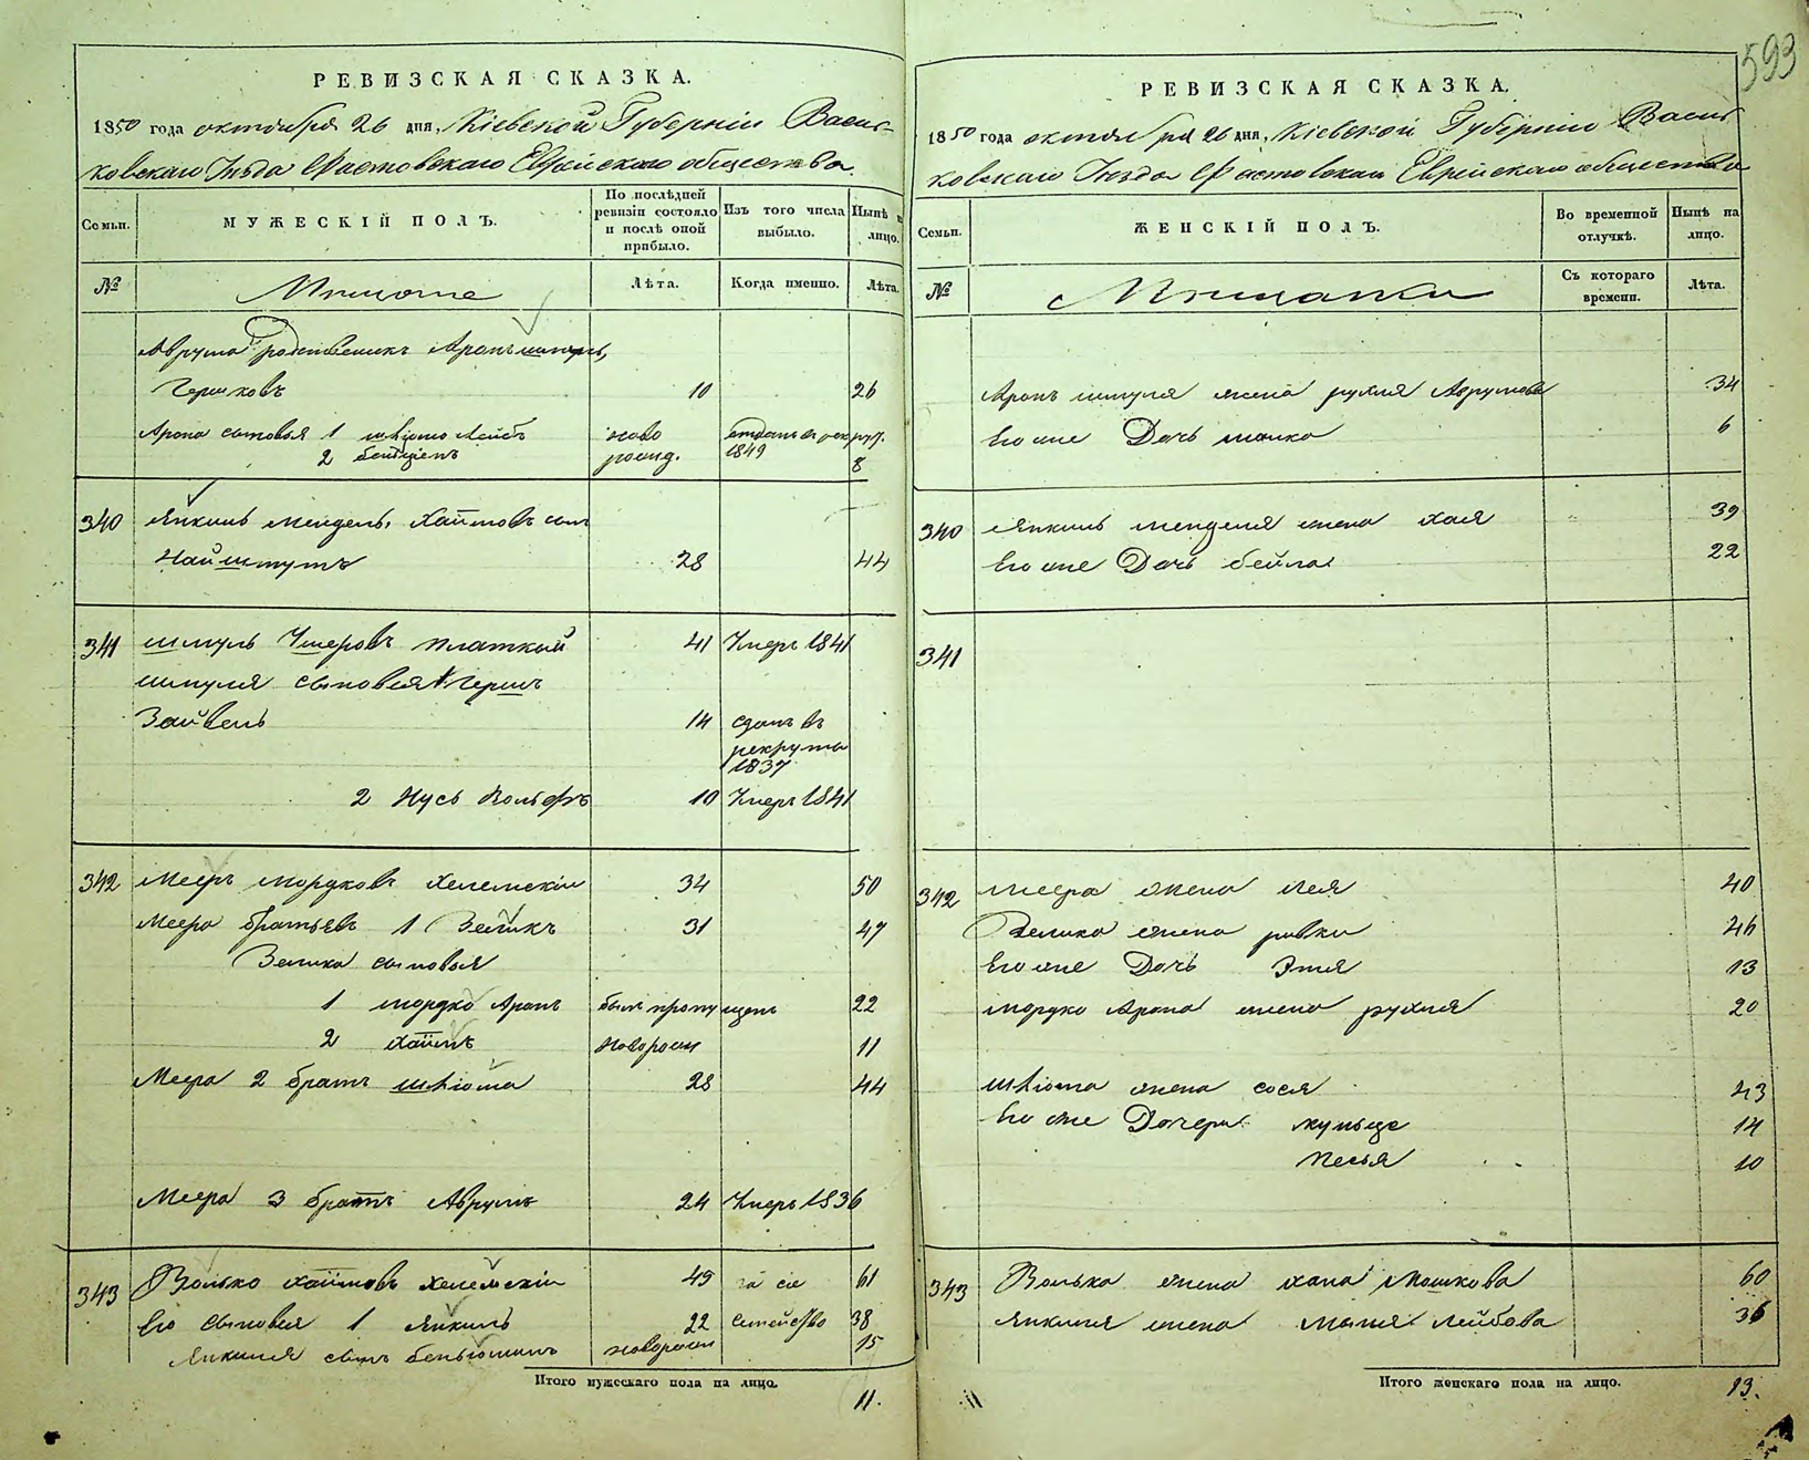 593
РЕВИЗСКАЯ СКАЗКА.
1850 года октября 26 дня, Кіевской Губерніи Василь-
ковскаго Уѣзда Фастовскаго Еврейскаго общества.
Семьи.
МУЖЕСКІЙ ПОЛЪ.
По послѣдней ревизіи состояло и послѣ оной прибыло.
Изъ того числа выбыло.
Нынѣ на лицо.
№
Мѣщане
Лѣта.
Когда именно.
Лѣта.
Аврума родственикъ Аронъ шмуль,
Гершковъ 10 26
Арона сыновья 1 шліомо Лейбъ ново отданъ в рекрут.
2 бенціенъ рожд. 1849 8
340 Янкель мендель Хаимовъ сынъ
Наймитутъ 28 44
341 шмуль Ушеровъ Платкый 41 Умеръ 1841
шмуля сыновья 1 Гершъ
Зайвель 14 сданъ въ
рекрута
1837
2 Нусь Вольфъ 10 Умеръ 1841
342 Мееръ мордковъ хелемскій 34 50
Меера братьевъ 1 Зеликъ 31 47
Зелика сыновья
1 мордко Аронъ былъ пропущенъ 22
2 хаимъ новорож 11
Меера 2 братъ шліома 28 44
Меера 3 братъ Аврумъ 24 Умеръ 1836
343 Волько хаимовъ хелемскій 45 на сіе 61
Его сыновья 1 янкель 22 семейство 38
Янкеля сынъ беньюминъ новорож 15
Итого мужескаго пола на лицо.
11.
РЕВИЗСКАЯ СКАЗКА.
1850 года октября 26 дня, Кіевской Губерніи Василь
ковскаго Уѣзда Фастовскаго Еврейскаго общества
Семьи.
ЖЕНСКІЙ ПОЛЪ.
Во временной отлучкѣ.
Нынѣ на лицо.
№
Мѣщанки
Съ котораго времени.
Лѣта.
Аронъ шмуля жена рухля Аврумова 34
Его же Дочь малка 6
340 Янкель менделя жена хая 39
Его же Дочь бейла 22
341
342 меера жена лея 40
Зелика жена ривка 46
Его же Дочь Этля 13
мордко Арона жена рухля 20
шліома жена сося 43
Его же Дочери мульце 14
Песья 10
343 Волька жена хана Мошкова 60
янкеля жена маля лейбова 36
Итого женскаго пола на лицо.
13.